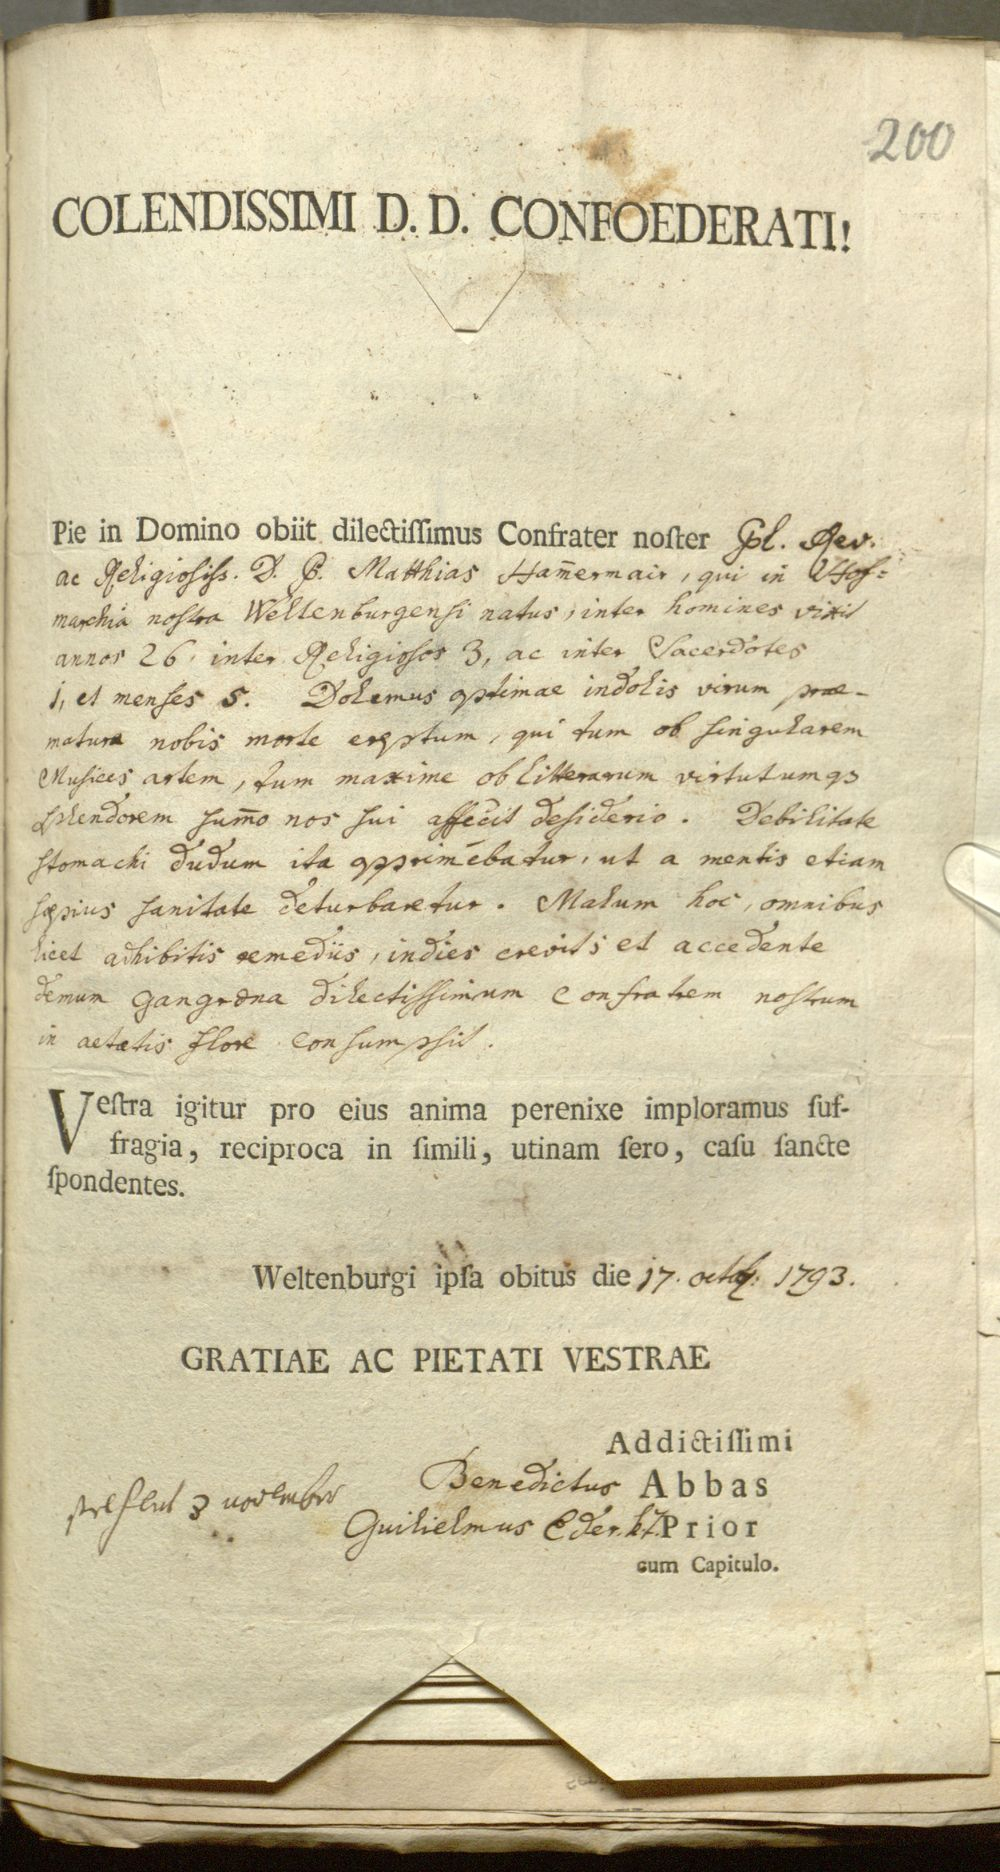 200
COLENDISSIMI D. D. CONFOEDERATI!
Pie in Domino obiit dilectiſſimus Confrater noſter Pl. Rev.
ac Religiosiss. D. P. Matthias Ham̄ermair, qui in Hof-
marchia nostra Weltenburgensi natus, inter homines vixit
annos 26, inter Religiosos 3, ac inter Sacerdotes
1, et menses 5. Dolemus optimae indolis virum prae-
matura nobis morte ereptum, qui tum ob singularem
Musices artem, tum maxime ob litterarum virtutumq3
splendorem sum̄o nos sui affecit desiderio. Debilitate
stomachi dudum ita opprimebatur, ut a mentis etiam
sæpius sanitate deturbaretur. Malum hoc, omnibus
licet adhibitis remediis, indies crevit; et accedente
demum gangræna dilectissimum confratrem nostrum
in aetatis flore consumpsit.
Veſtra igitur pro eius anima perenixe imploramus ſuf-
fragia, reciproca in ſimili, utinam ſero, caſu ſancte
ſpondentes.
Weltenburgi ipſa obitus die 17. octob: 1793.
GRATIAE AC PIETATI VESTRAE
Addictiſſimi
Benedictus Abbas
praesent 3 november
Guilielmus Eder. Prior
cum Capitulo.